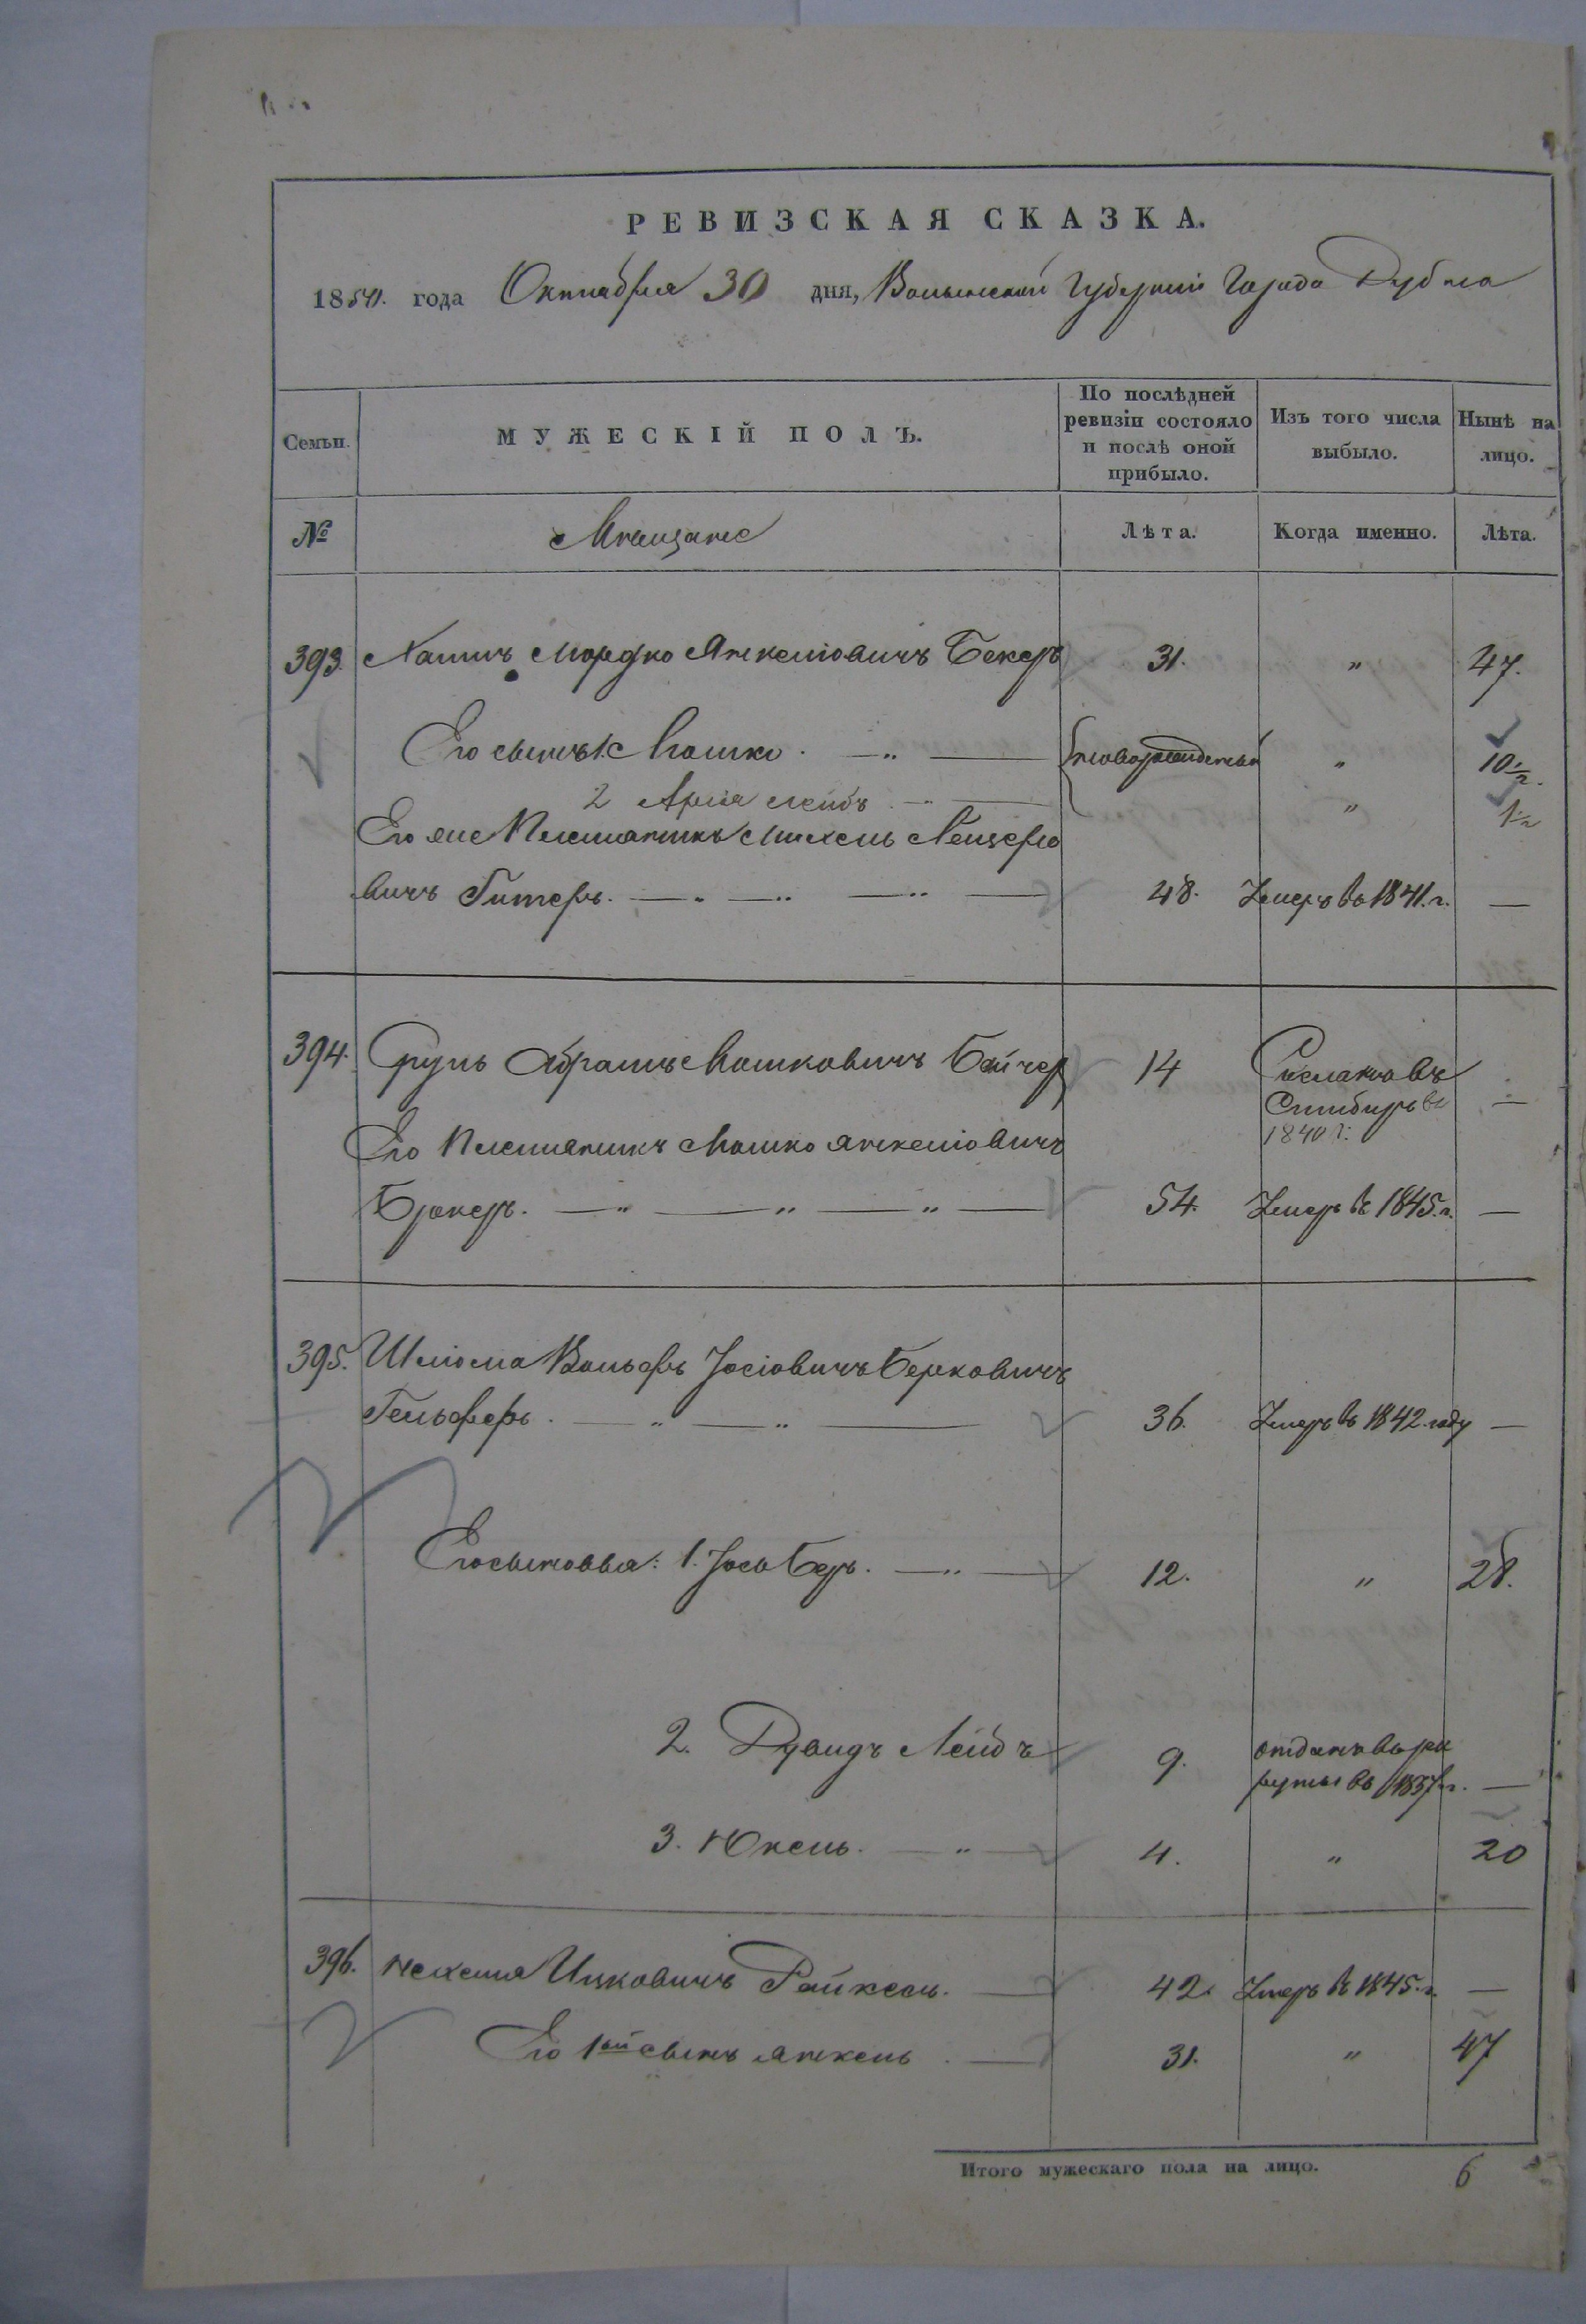 РЕВИЗСКАЯ СКАЗКА.
1850. года Октября 30 дня, Волынской Губернии Города Дубна
Семьи. МУЖЕСКІЙ ПОЛЪ. По послѣдней ревизіи состояло и послѣ оной прибыло. Изъ того числа выбыло. Нынѣ на лицо.
№ Мещане Лѣта. Когда именно. Лѣта.
393. Хаимъ Мордко Янкеліовичъ Бекеръ 31. " 47.
Его сынъ 1. Мошко. новорожденные " 10 1/2.
2 Арія Лейбъ " 1/2
Его же Племянникъ Михель Лейзеро
вичъ Гитеръ. 48. Умеръ въ 1841. г. —
394. Сруль Абрамъ Мошковичъ Байчер 14 Сосланъ въ
Сибирь въ —
1840 г:
Его Племянникъ Мошко Янкеліовичъ
Брокеръ. 54. Умеръ въ 1845. г. —
395. Шліома Вольфъ Іосіовичъ Берковичъ
Гельферъ. 36. Умеръ въ 1842. году —
Его сыновья: 1. Іось Беръ. 12. " 28.
2. Дувидъ Лейбъ 9. отданъ въ рек
руты въ 1837 г. —
3. Юкель. 4. " 20
396. Нехемія Ицковичъ Райхель. 42. Умеръ въ 1845. г. —
Его 1ый сынъ Янкель 31. " 47
Итого мужескаго пола на лицо. 6